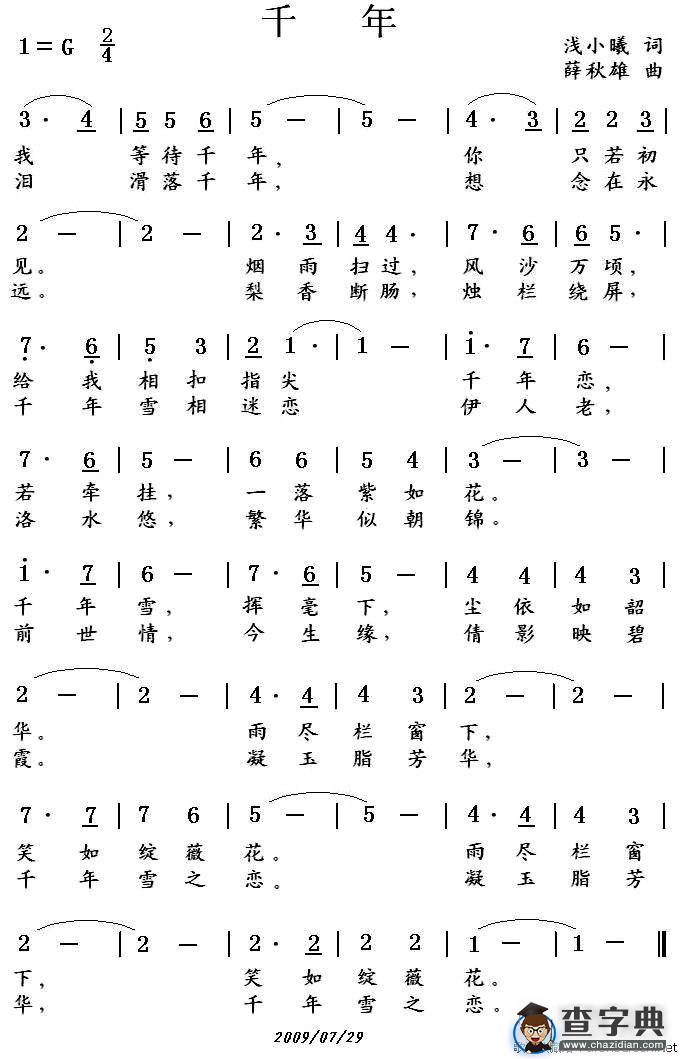 千 年
1=G 2/4
浅小曦 词
薛秋雄 曲
3· 4 | 5 5 6 | 5 - | 5 - | 4· 3 | 2 2 3 |
我 等待千 年, 你 只若初
泪 滑落千 年, 想 念在永
2 - | 2 - | 2· 3 | 4 4· | 7· 6 | 6 5· |
见。 烟 雨 扫 过, 风 沙 万 顷,
远。 梨 香 断 肠, 烛 栏 绕 屏,
7· 6 | 5 3 | 2 1· | 1 - | i· 7 | 6 - |
给 我 相 扣 指 尖 千 年 恋,
千 年 雪 相 迷 恋 伊 人 老,
7· 6 | 5 - | 6 6 | 5 4 | 3 - | 3 - |
若 牵 挂, 一 落 紫 如 花。
洛 水 悠, 繁 华 似 朝 锦。
i· 7 | 6 - | 7· 6 | 5 - | 4 4 | 4 3 |
千 年 雪, 挥 毫 下, 尘 依 如 韶
前 世 情, 今 生 缘, 倩 影 映 碧
2 - | 2 - | 4· 4 | 4 3 | 2 - | 2 - |
华。 雨 尽 栏 窗 下,
霞。 凝 玉 脂 芳 华,
7· 7 | 7 6 | 5 - | 5 - | 4· 4 | 4 3 |
笑 如 绽 薇 花。 雨 尽 栏 窗
千 年 雪 之 恋。 凝 玉 脂 芳
2 - | 2 - | 2· 2 | 2 2 | 1 - | 1 - ‖
下, 笑 如 绽 薇 花。
华, 千 年 雪 之 恋。
2009/07/29
查字典
www.chazidian.com